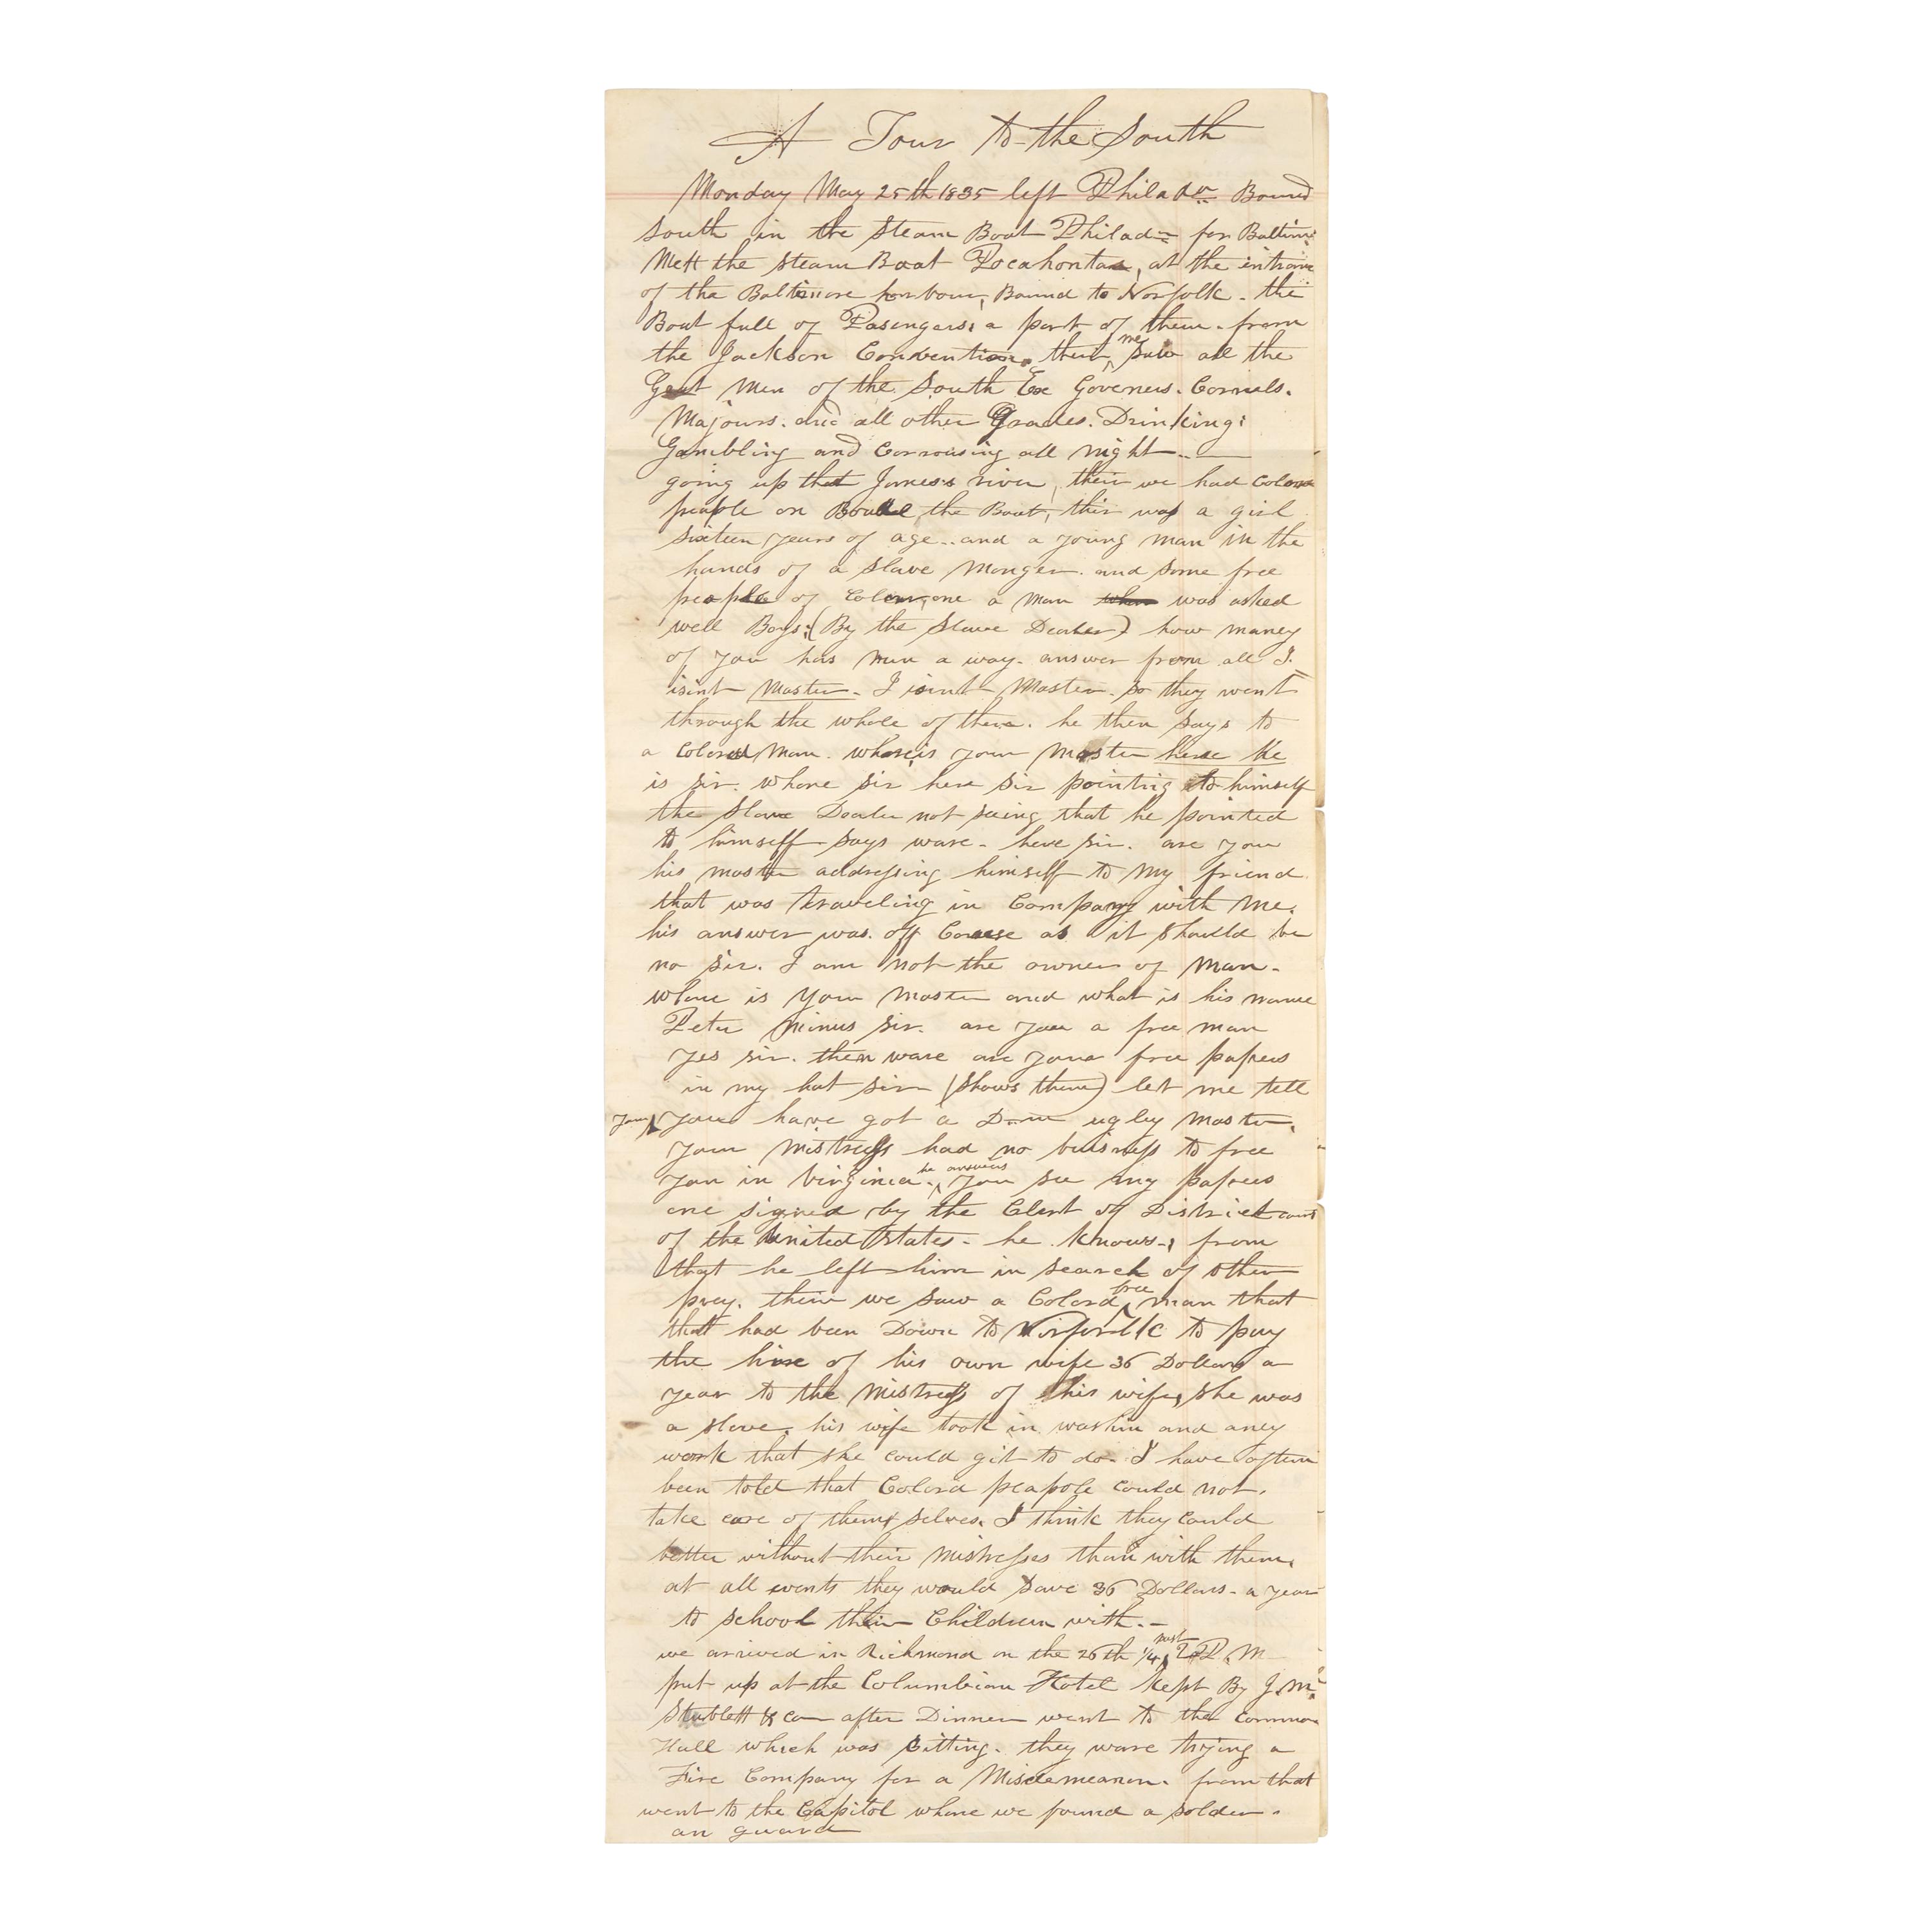 A Tour to the South
Monday May 25th 1835 left Philada Bound
South in the Steam Boat Philada for Baltim
Mett the Steam Boat Pocahontas, at the intranc
of tha Baltimore harbour, Bound to Norfolk - the
Boat full of Pasengers; a part of them - from
the Jackson Convention, their me Saw all the
Great Men of the South Ex Goveners. Cornals.
Majours. and all other Grades. Drinking;
Gambling and Carrousing all night -
going up that James's river, their we had Colord
people on Board the Boat, thier was a girl
Sixteen years of age - and a young man in the
hands of a Slave Monger. and Some free
people of Colour, one a man when was asked
well Boys; (By the Slave Dealer) how maney
of you has run a way - answer from all I.
isint Master - I isint Master. So they went
through the whole of them. he then Says to
a Colored Man. where is your Master here he
is sir. whare sir here sir pointing to himself
the Slave Dealer not seing that he pointed
to himself says ware - here sir. are you
his master addressing himself to My friend
that was traveling in Company with Me.
his answer was. off Course as it should be
no sir. I am not the owner of Man -
whare is your Master and what is his name
Peter Minus sir. are you a free man
yes sir. then ware are your free papers
in my hat sir (Shows them) let me tell
you you have got a D--m ugley Master.
your Mistress had no buisness to free
you in Virginia. he answers you see my papers
one signed by the Clerk of District court
of the United States - he knows -, from
that he left him in search of other
prey. their we Saw a Colord free man that
that had been Down to Norfolk to pay
the hire of his own wife 36 Dollars a
year to the Mistress of his wife, She was
a Slave. his wife took in washin and aney
work that she could git to do - I have oftin
been told that Colord peapole could not.
take care of them selves. I think they could
better without their Mistresses than with them,
at all events they would Save 36 Dollars - a year
to school their Children with. -
we arrived in Richmond on the 26th 1/4 past 2 P. M
put up at the Columbian Hotel Kept By J. M.
Stublett & co after Dinner went to the Common
Hall which was Sitting. they ware trying a
Fire Company for a Misdemeanor. from that
went to the Capitol whare we found a solder.
an guard